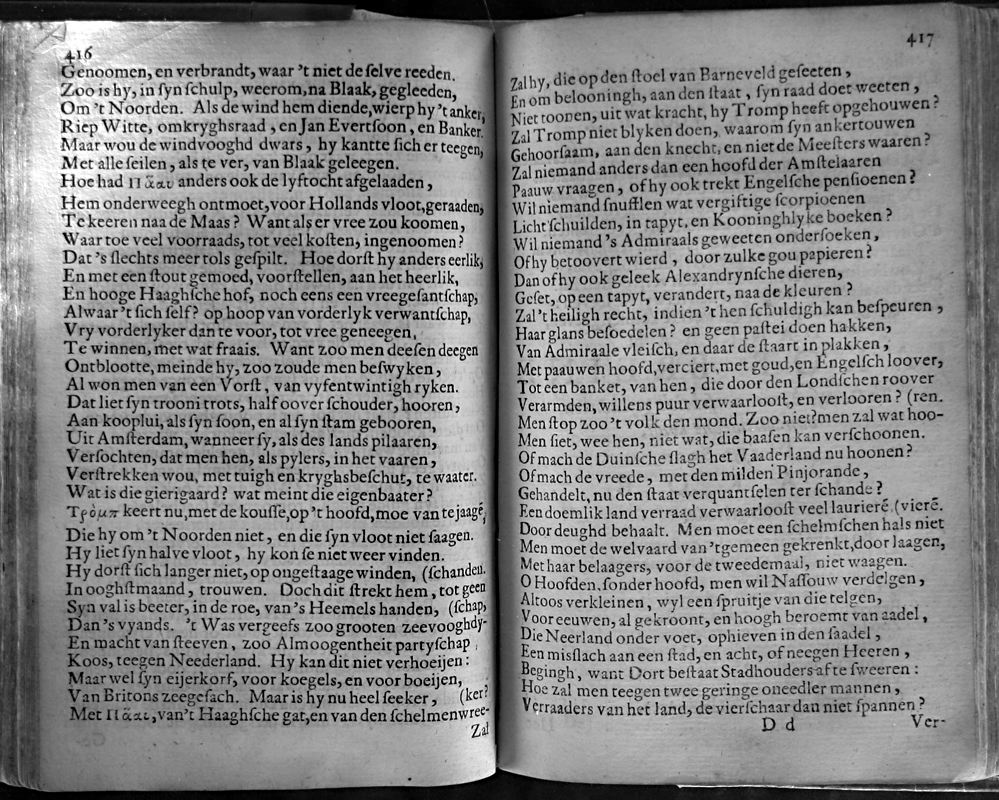 416
Genoomen, en verbrandt, waar 't niet de ſelve reeden.
Zoo is hy, in ſyn ſchulp, weerom, na Blaak, gegleeden,
Om 't Noorden. Als de wind hem diende, wierp hy 't anker,
Riep Witte, omkryghsraad, en Jan Evertſoon, en Banker.
Maar wou de windvooghd dwars, hy kantte ſich er teegen,
Met alle ſeilen, als te ver, van Blaak geleegen.
Hoe had Πᾶαυ anders ook de lyftocht afgelaaden,
Hem onderweegh ontmoet, voor Hollands vloot, geraaden,
Te keeren naa de Maas? Want als er vree zou koomen,
Waar toe veel voorraads, tot veel koſten, ingenoomen?
Dat 's ſlechts meer tols geſpilt. Hoe dorſt hy anders eerlik,
En met een ſtout gemoed, voorſtellen, aan het heerlik,
En hooge Haaghſche hof, noch eens een vreegeſantſchap,
Alwaar 't ſich ſelf? op hoop van vorderlyk verwantſchap,
Vry vorderlyker dan te voor, tot vree geneegen,
Te winnen, met wat fraais. Want zoo men deeſen deegen
Ontblootte, meinde hy, zoo zoude men beſwyken,
Al won men van een Vorſt, van vyfentwintigh ryken.
Dat liet ſyn trooni trots, half oover ſchouder, hooren,
Aan kooplui, als ſyn ſoon, en al ſyn ſtam gebooren,
Uit Amſterdam, wanneer ſy, als des lands pilaaren,
Verſochten, dat men hen, als pylers, in het vaaren,
Verſtrekken wou, met tuigh en kryghsbeſchut, te waater.
Wat is die gierigaard? wat meint die eigenbaater?
Τρὸμπ keert nu, met de kouſſe, op 't hoofd, moe van te jaagē,
Die hy om 't Noorden niet, en die ſyn vloot niet ſaagen.
Hy liet ſyn halve vloot, hy kon ſe niet weer vinden.
Hy dorſt ſich langer niet, op ongeſtaage winden, (ſchanden.
In ooghſtmaand, trouwen. Doch dit ſtrekt hem, tot geen
Syn val is beeter, in de roe, van 's Heemels handen, (ſchap,
Dan 's vyands. 't Was vergeefs zoo grooten zeevooghdy-
En macht van ſteeven, zoo Almoogentheit partyſchap
Koos, teegen Neederland. Hy kan dit niet verhoeijen:
Maar wel ſyn eijerkorf, voor koegels, en voor boeijen,
Van Britons zeegeſach. Maar is hy nu heel ſeeker, (ker?
Met Πᾶαυ, van 't Haaghſche gat, en van den ſchelmenwree-
Zal
417
Zal hy, die op den ſtoel van Barneveld geſeeten,
En om belooningh, aan den ſtaat, ſyn raad doet weeten,
Niet toonen, uit wat kracht, hy Tromp heeft opgehouwen?
Zal Tromp niet blyken doen, waarom ſyn ankertouwen
Gehoorſaam, aan den knecht, en niet de Meeſters waaren?
Zal niemand anders dan een hoofd der Amſtelaaren
Paauw vraagen, of hy ook trekt Engelſche penſioenen?
Wil niemand ſnufflen wat vergiftige ſcorpioenen
Licht ſchuilden, in tapyt, en Kooninghlyke boeken?
Wil niemand 's Admiraals geweeten onderſoeken,
Of hy betoovert wierd, door zulke gou papieren?
Dan of hy ook geleek Alexandrynſche dieren,
Geſet, op een tapyt, verandert, naa de kleuren?
Zal 't heiligh recht, indien 't hen ſchuldigh kan beſpeuren,
Haar glans beſoedelen? en geen paſtei doen hakken,
Van Admiraale vleiſch, en daar de ſtaart in plakken,
Met paauwen hoofd, verciert, met goud, en Engelſch loover,
Tot een banket, van hen, die door den Londſchen roover
Verarmden, willens puur verwaarlooſt, en verlooren? (ren.
Men ſtop zoo 't volk den mond. Zoo niet? men zal wat hoo-
Men ſiet, wee hen, niet wat, die baaſen kan verſchoonen.
Of mach de Duinſche ſlagh het Vaaderland nu hoonen?
Of mach de vreede, met den milden Pinjorande,
Gehandelt, nu den ſtaat verquantſelen ter ſchande?
Een doemlik land verraad verwaarlooſt veel laurierē (vierē.
Door deughd behaalt. Men moet een ſchelmſchen hals niet
Men moet de welvaard van 't gemeen gekrenkt, door laagen,
Met haar belaagers, voor de tweedemaal, niet waagen.
O Hoofden, ſonder hoofd, men wil Naſſouw verdelgen,
Altoos verkleinen, wyl een ſpruitje van die telgen,
Voor eeuwen, al gekroont, en hoogh beroemt van aadel,
Die Neerland onder voet, ophieven in den ſaadel,
Een miſlach aan een ſtad, en acht, of neegen Heeren,
Begingh, want Dort beſtaat Stadhouders af te ſweeren:
Hoe zal men teegen twee geringe oneedler mannen,
Verraaders van het land, de vierſchaar dan niet ſpannen?
D d
Ver-